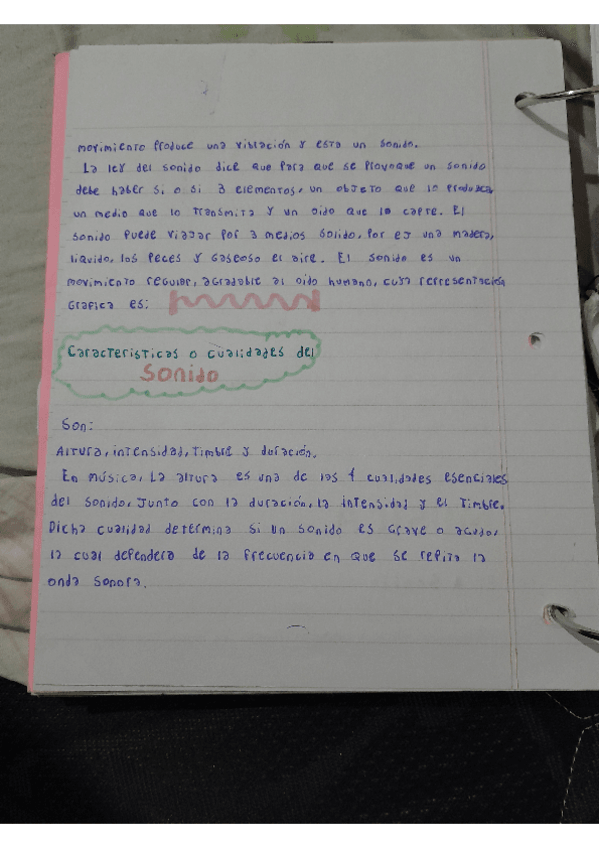 movimiento produce una vibración y esta un sonido.
La ley del sonido dice que para que se provoque un sonido
debe haber si o si 3 elementos, un objeto que lo produzca,
un medio que lo transmita y un oido que lo capte. El
sonido puede viajar por 3 medios solido, por ej una madera,
liquido, los peces y gaseoso el aire. El sonido es un
movimiento regular, agradable al oido humano, cuya representación
grafica es:
Caracteristicas o cualidades del
Sonido
Son:
Altura, intensidad, timbre y duración.
En música, la altura es una de las 4 cualidades esenciales
del sonido, junto con la duración, la intensidad y el timbre.
Dicha cualidad determina si un sonido es grave o agudo,
la cual defendera de la frecuencia en que se repita la
onda sonora.